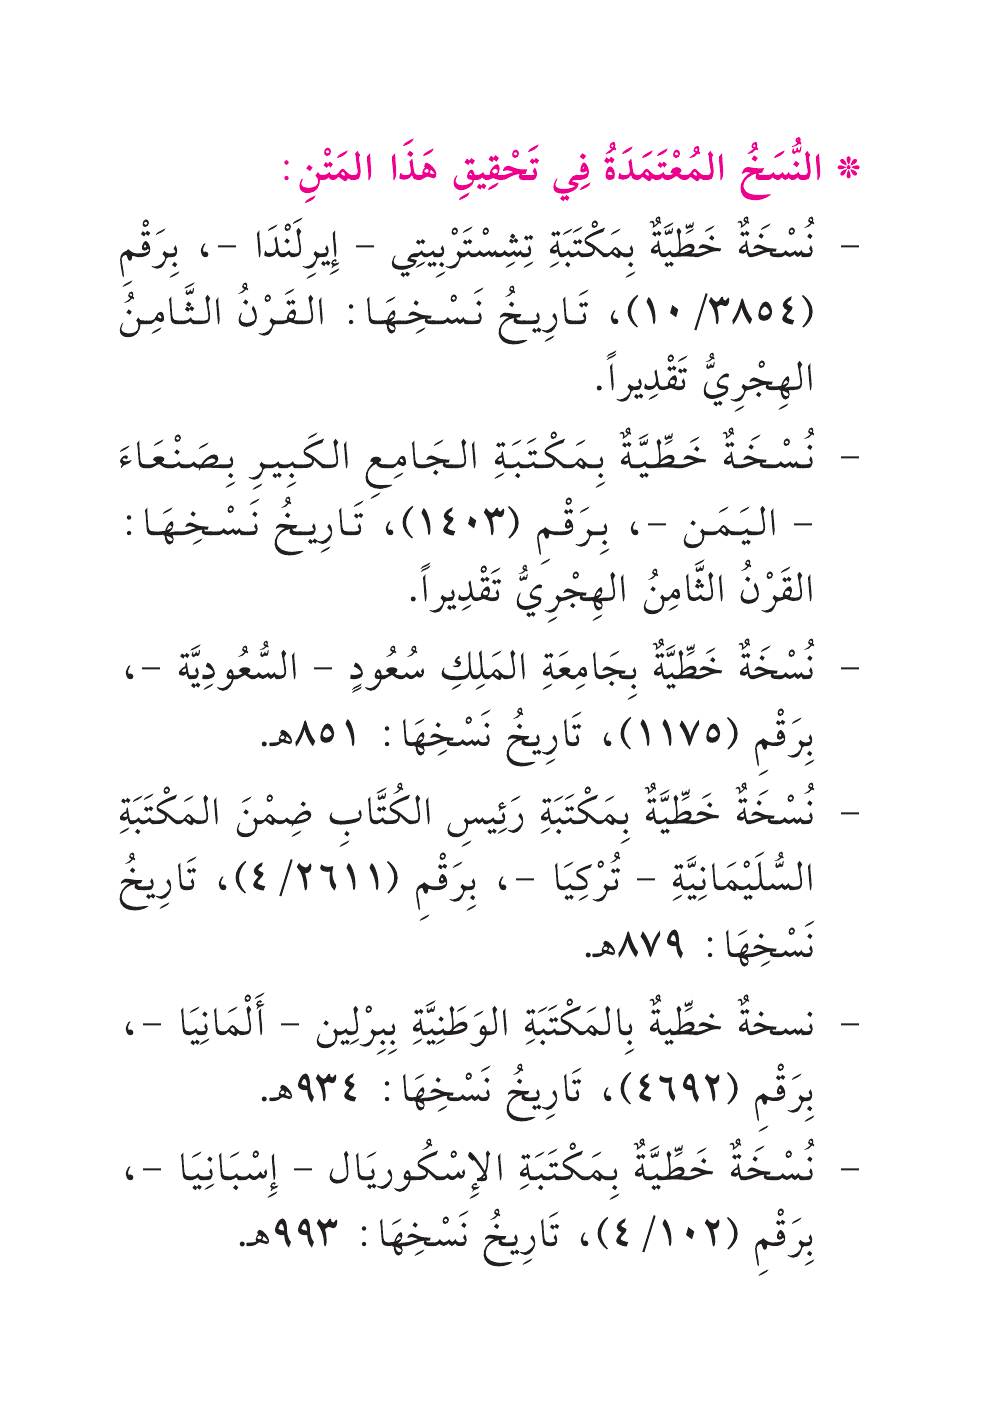 ❊ النُّسَخُ المُعْتَمَدَةُ فِي تَحْقِيقِ هَذَا المَتْنِ:
- نُسْخَةٌ خَطِّيَّةٌ بِمَكْتَبَةِ تِشِسْتَرْبِيتِي - إِيرِلَنْدَا -، بِرَقْمِ
(٣٨٥٤/ ١٠)، تَارِيخُ نَسْخِهَا: القَرْنُ الثَّامِنُ
الهِجْرِيُّ تَقْدِيراً.
- نُسْخَةٌ خَطِّيَّةٌ بِمَكْتَبَةِ الجَامِعِ الكَبِيرِ بِصَنْعَاءَ
- اليَمَن -، بِرَقْمِ (١٤٠٣)، تَارِيخُ نَسْخِهَا:
القَرْنُ الثَّامِنُ الهِجْرِيُّ تَقْدِيراً.
- نُسْخَةٌ خَطِّيَّةٌ بِجَامِعَةِ المَلِكِ سُعُودٍ - السُّعُودِيَّة -،
بِرَقْمِ (١١٧٥)، تَارِيخُ نَسْخِهَا: ٨٥١هـ.
- نُسْخَةٌ خَطِّيَّةٌ بِمَكْتَبَةِ رَئِيسِ الكُتَّابِ ضِمْنَ المَكْتَبَةِ
السُّلَيْمَانِيَّةِ - تُرْكِيَا -، بِرَقْمِ (٢٦١١/ ٤)، تَارِيخُ
نَسْخِهَا: ٨٧٩هـ.
- نسخةٌ خطِّيةٌ بِالمَكْتَبَةِ الوَطَنِيَّةِ بِبِرْلِين - أَلْمَانِيَا -،
بِرَقْمِ (٤٦٩٢)، تَارِيخُ نَسْخِهَا: ٩٣٤هـ.
- نُسْخَةٌ خَطِّيَّةٌ بِمَكْتَبَةِ الإِسْكُورِيَال - إِسْبَانِيَا -،
بِرَقْمِ (١٠٢/ ٤)، تَارِيخُ نَسْخِهَا: ٩٩٣هـ.